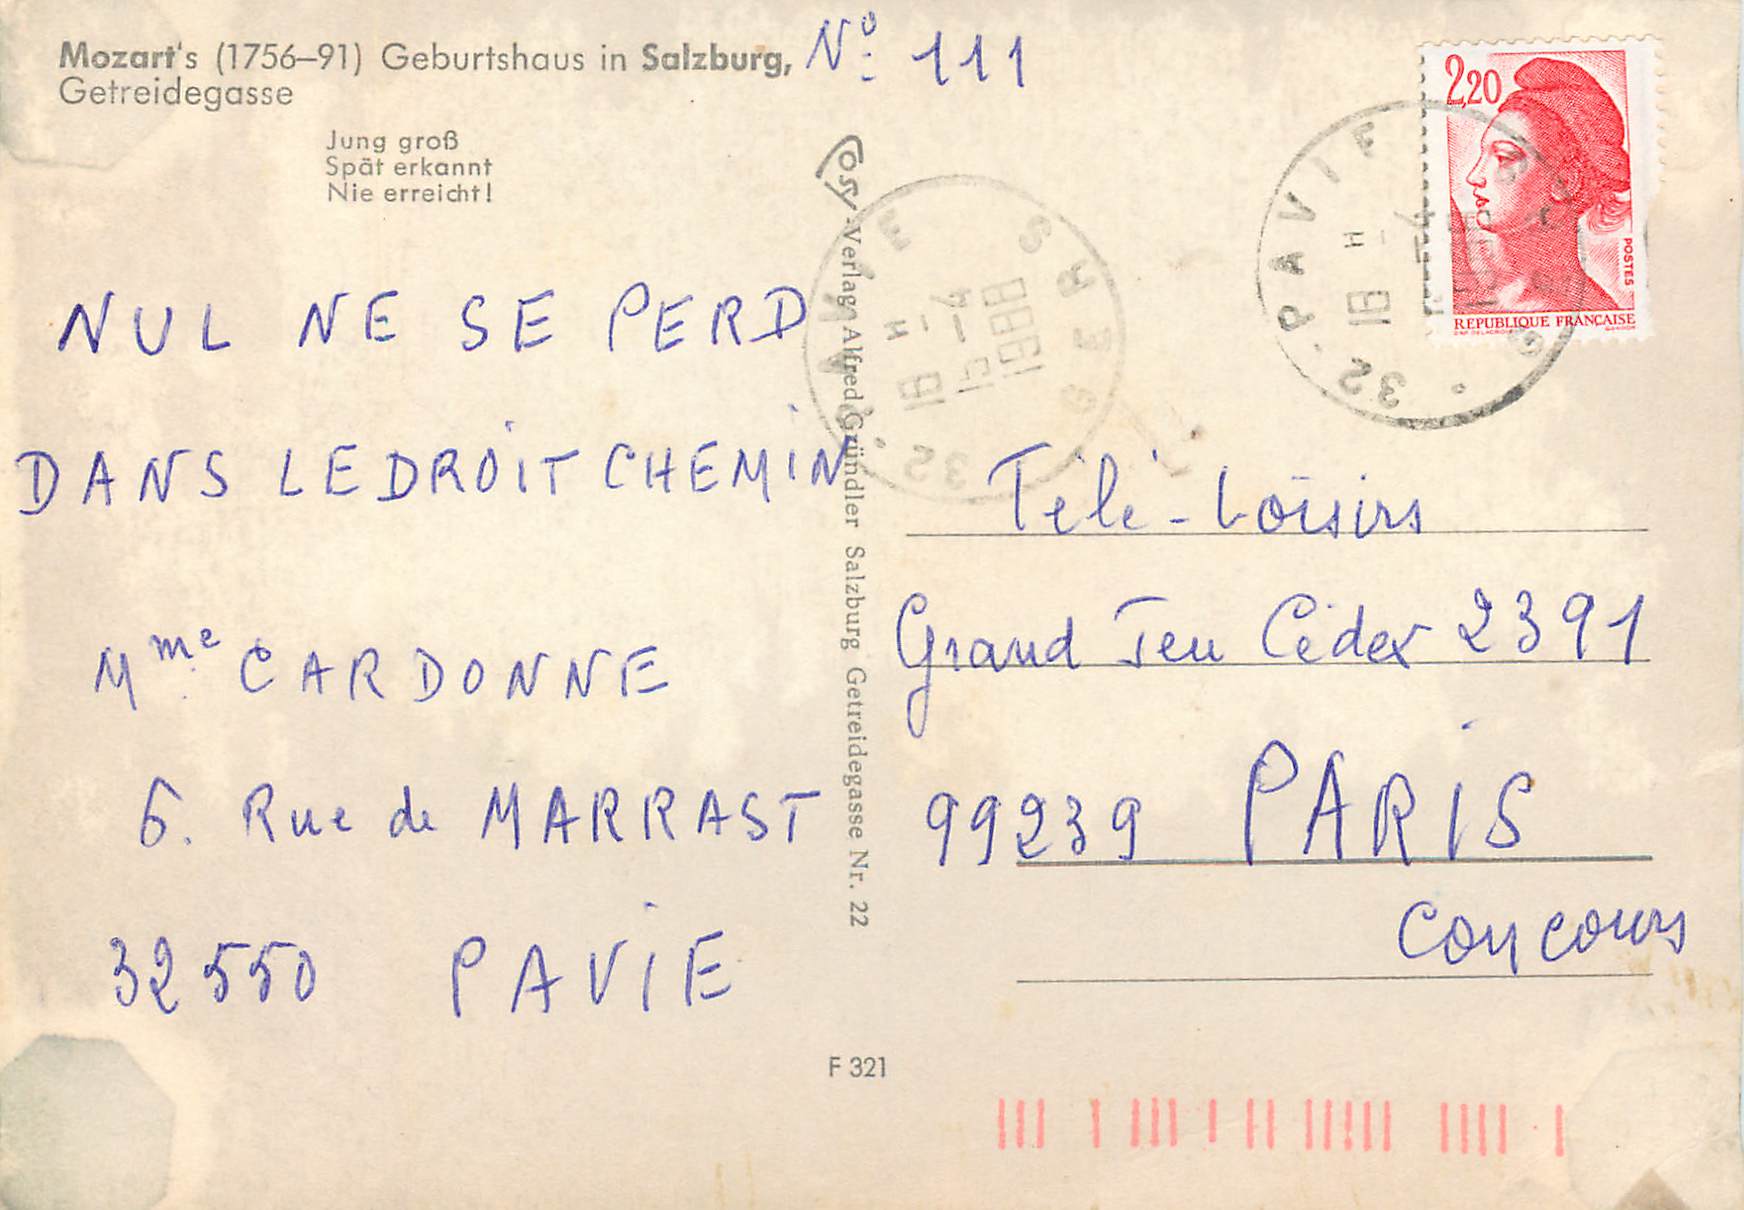 Mozart's (1756–91) Geburtshaus in Salzburg,
Getreidegasse
N° 111
Jung groß
Spät erkannt
Nie erreicht!
NUL NE SE PERD
DANS LE DROIT CHEMIN
Mme CARDONNE
6. Rue de MARRAST
32550 PAVIE
Cosy Verlag Alfred Gründler Salzburg Getreidegasse Nr. 22
F 321
2,20
POSTES
REPUBLIQUE FRANÇAISE
32 · PAVIE
GERS
18 H
15 - 4
1988
32 · PAVIE
18 H
Télé-Loisirs
Grand Jeu Cédex 2391
99239 PARIS
Concours